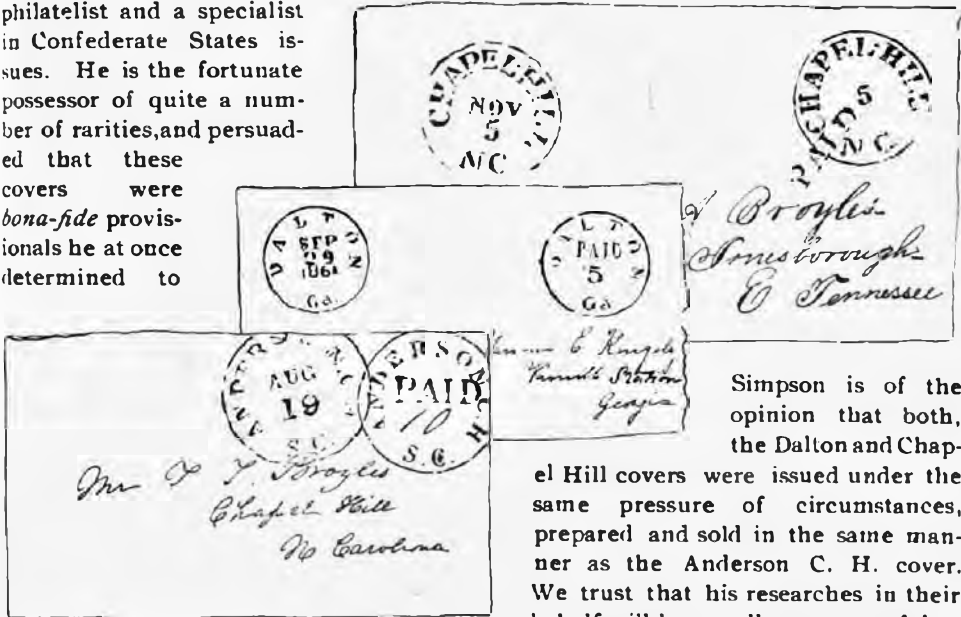 philatelist and a specialist
in Confederate States is-
sues. He is the fortunate
possessor of quite a num-
ber of rarities,and persuad-
ed that these
covers were
bona-fide provis-
ionals he at once
determined to
CHAPEL-HILL
NOV
5
N C
CHAPEL-HILL
5
PAID
N C
Broyles
Jonesborough
E Tennessee
DALTON
SEP
29
1861
Ga.
DALTON
PAID
5
Ga
E
Station
Georgia
ANDERSON C.H
AUG
19
S.C.
ANDERSON C.H
PAID
10
S.C.
Mr T. Broyles
Chapel Hill
No Carolina
Simpson is of the
opinion that both,
the Dalton and Chap-
el Hill covers were issued under the
same pressure of circumstances,
prepared and sold in the same man-
ner as the Anderson C. H. cover.
We trust that his researches in their